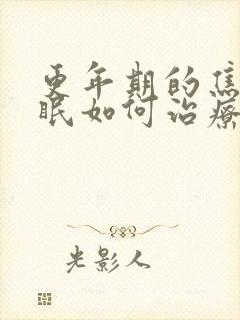 更年期的焦
眠如何治療
光影人